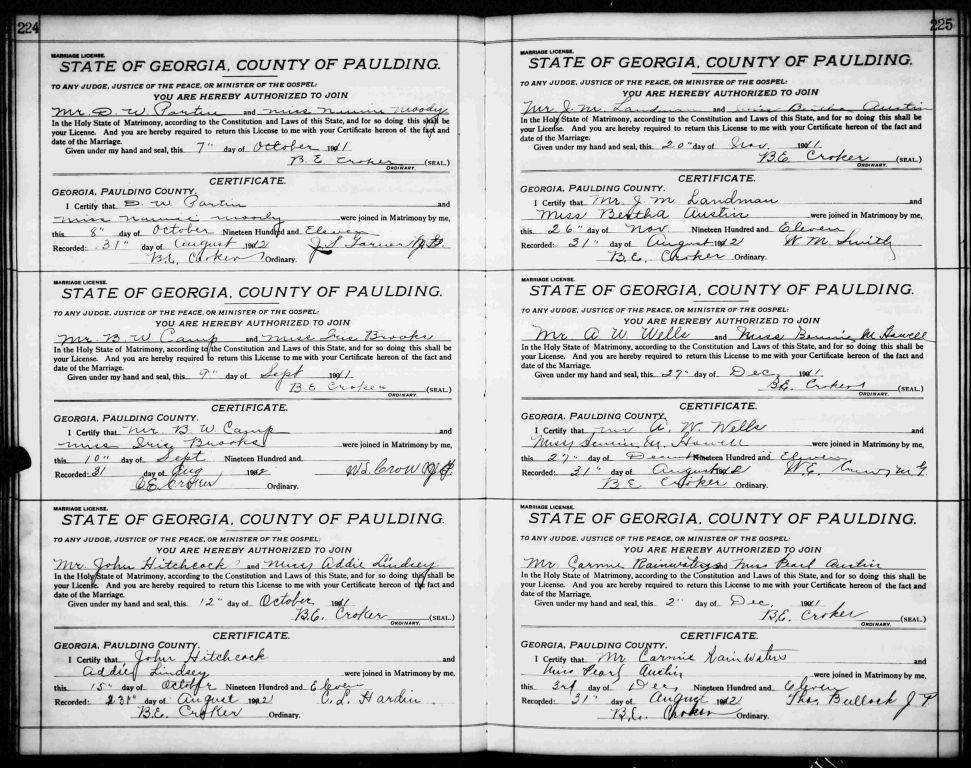 224
MARRIAGE LICENSE.
STATE OF GEORGIA, COUNTY OF PAULDING.
TO ANY JUDGE, JUSTICE OF THE PEACE, OR MINISTER OF THE GOSPEL:
YOU ARE HEREBY AUTHORIZED TO JOIN
Mr. D. W Partin and Miss Moody
In the Holy State of Matrimony, according to the Constitution and Laws of this State, and for so doing this shall be
your License. And you are hereby required to return this License to me with your Certificate hereon of the fact and
date of the Marriage.
Given under my hand and seal, this 7" day of October 1911
B E Croker (SEAL.)
ORDINARY.
CERTIFICATE.
GEORGIA, PAULDING COUNTY.
I Certify that D. W Partin and
Miss Moody were joined in Matrimony by me,
this 8" day of October Nineteen Hundred and Eleven
Recorded: 31" day of August 1912 J. S.
B.E. Croker Ordinary.
MARRIAGE LICENSE.
STATE OF GEORGIA, COUNTY OF PAULDING.
TO ANY JUDGE, JUSTICE OF THE PEACE, OR MINISTER OF THE GOSPEL:
YOU ARE HEREBY AUTHORIZED TO JOIN
Mr. B W Camp and Miss Iris Brooks
In the Holy State of Matrimony, according to the Constitution and Laws of this State, and for so doing this shall be
your License. And you are hereby required to return this License to me with your Certificate hereon of the fact and
date of the Marriage.
Given under my hand and seal, this 9" day of Sept 1911
B E Croker (SEAL.)
ORDINARY.
CERTIFICATE.
GEORGIA, PAULDING COUNTY.
I Certify that Mr. B. W. Camp and
Miss Iris Brooks were joined in Matrimony by me,
this 10" day of Sept Nineteen Hundred and
Recorded: 31 day of Aug 1912 W. S. Crow
Croker Ordinary.
MARRIAGE LICENSE.
STATE OF GEORGIA, COUNTY OF PAULDING.
TO ANY JUDGE, JUSTICE OF THE PEACE, OR MINISTER OF THE GOSPEL:
YOU ARE HEREBY AUTHORIZED TO JOIN
Mr. John Hitchcock and Miss Addie Lindsey
In the Holy State of Matrimony, according to the Constitution and Laws of this State, and for so doing this shall be
your License. And you are hereby required to return this License to me with your Certificate hereon of the fact and
date of the Marriage.
Given under my hand and seal, this 12" day of October 1911
B.E. Croker (SEAL.)
ORDINARY.
CERTIFICATE.
GEORGIA, PAULDING COUNTY.
I Certify that John Hitchcock and
Addie Lindsey were joined in Matrimony by me,
this 15" day of October Nineteen Hundred and Eleven
Recorded: 31" day of August C. L. Hardin
B.E. Croker Ordinary.
225
MARRIAGE LICENSE.
STATE OF GEORGIA, COUNTY OF PAULDING.
TO ANY JUDGE, JUSTICE OF THE PEACE, OR MINISTER OF THE GOSPEL:
YOU ARE HEREBY AUTHORIZED TO JOIN
Mr J. M. Landman and Miss Bertha Austin
In the Holy State of Matrimony, according to the Constitution and Laws of this State, and for so doing this shall be
your License. And you are hereby required to return this License to me with your Certificate hereon of the fact and
date of the Marriage.
Given under my hand and seal, this 20" day of Nov. 1911
B.E. Croker (SEAL.)
ORDINARY.
CERTIFICATE.
GEORGIA, PAULDING COUNTY.
I Certify that Mr. J. M Landman and
Miss Bertha Austin were joined in Matrimony by me,
this 26" day of Nov. Nineteen Hundred and Eleven
Recorded: 31" day of August 1912 W. M. Smith
B.E. Croker Ordinary.
MARRIAGE LICENSE.
STATE OF GEORGIA, COUNTY OF PAULDING.
TO ANY JUDGE, JUSTICE OF THE PEACE, OR MINISTER OF THE GOSPEL:
YOU ARE HEREBY AUTHORIZED TO JOIN
Mr A W. Wells and Miss M. Howell
In the Holy State of Matrimony, according to the Constitution and Laws of this State, and for so doing this shall be
your License. And you are hereby required to return this License to me with your Certificate hereon of the fact and
date of the Marriage.
Given under my hand and seal, this 27" day of Dec, 1911
B.E. Croker (SEAL.)
ORDINARY.
CERTIFICATE.
GEORGIA, PAULDING COUNTY.
I Certify that Mr A. W. Wells and
Miss M. Howell were joined in Matrimony by me,
this 27" day of Nineteen Hundred and Eleven
Recorded: 31" day of August 1912 W. E. M. G.
B E Croker Ordinary.
MARRIAGE LICENSE.
STATE OF GEORGIA, COUNTY OF PAULDING.
TO ANY JUDGE, JUSTICE OF THE PEACE, OR MINISTER OF THE GOSPEL:
YOU ARE HEREBY AUTHORIZED TO JOIN
Mr. Carmie Rainwaters and Miss Pearl Austin
In the Holy State of Matrimony, according to the Constitution and Laws of this State, and for so doing this shall be
your License. And you are hereby required to return this License to me with your Certificate hereon of the fact and
date of the Marriage.
Given under my hand and seal, this 2" day of Dec, 1911
B.E. Croker (SEAL.)
ORDINARY.
CERTIFICATE.
GEORGIA, PAULDING COUNTY.
I Certify that Mr Carmie Rainwaters and
Miss Pearl Austin were joined in Matrimony by me,
this 3rd day of Dec Nineteen Hundred and Eleven
Recorded: 31" day of August 1912 Thos. Bullock J P
B.E. Croker Ordinary.